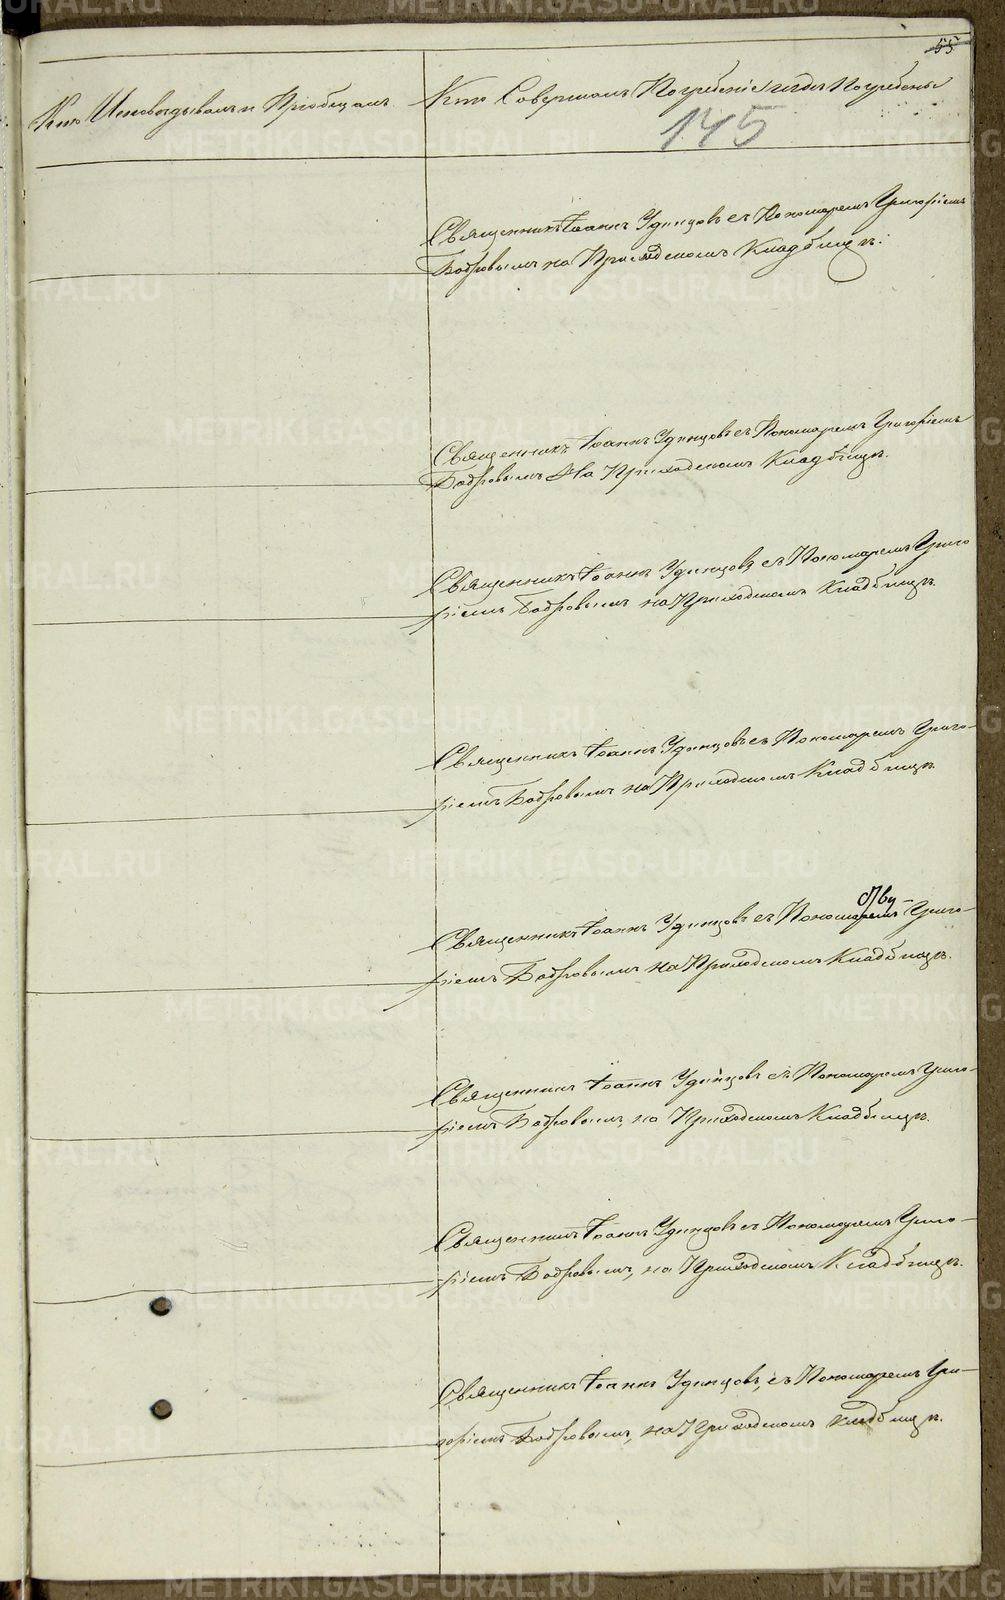 55
Кто Исповѣдывалъ и Пріобщалъ.
Кто Совершалъ Погребеніе и гдѣ Погребены
145
Священникъ Іоаннъ Удинцовъ съ Пономаремъ Григоріемъ
Бобровымъ на Приходскомъ Кладбищѣ.
Священникъ Іоаннъ Удинцовъ съ Пономаремъ Григоріемъ
Бобровымъ На Приходскомъ Кладбищѣ.
Священникъ Іоаннъ Удинцовъ съ Пономаремъ Григо
ріемъ Бобровымъ на Приходскомъ Кладбищѣ.
Священникъ Іоаннъ Удинцовъ съ Пономаремъ Григо-
ріемъ Бобровымъ на Приходскомъ Кладбищѣ.
Священникъ Іоаннъ Удинцовъ съ Пономаремъ Григо-
ріемъ Бобровымъ на Приходскомъ Кладбищѣ.
Священникъ Іоаннъ Удинцовъ съ Пономаремъ Григо-
ріемъ Бобровымъ, на Приходскомъ Кладбищѣ.
Священникъ Іоаннъ Удинцовъ съ Пономаремъ Григо-
ріемъ Бобровымъ, на Приходскомъ Кладбищѣ.
Священникъ Іоаннъ Удинцовъ, съ Пономаремъ Гри-
горіемъ Бобровымъ, на Приходскомъ кладбищѣ.
METRIKI.GASO-URAL.RU